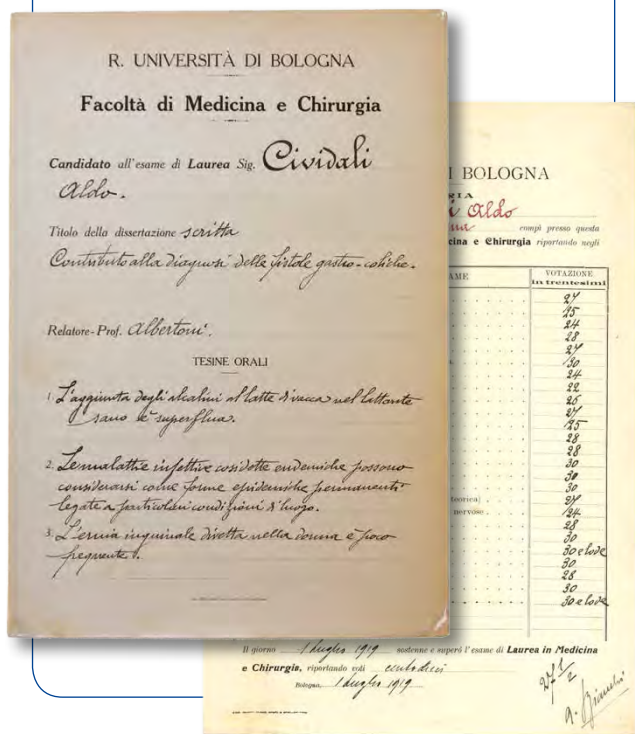 R. UNIVERSITÀ DI BOLOGNA
Facoltà di Medicina e Chirurgia
Candidato all'esame di Laurea Sig. Cividali
Aldo.
Titolo della dissertazione scritta
Contributo alla diagnosi delle fistole gastro-coliche.
Relatore-Prof. Albertoni.
TESINE ORALI
1. L'aggiunta degli alcalini al latte di vacca nel lattante
sano è superflua.
2. Le malattie infettive cosidette endemiche possono
considerarsi come forme epidemiche permanenti
legate a particolari condizioni di luogo.
3. L'ernia inguinale diretta nella donna è poco
frequente.
I BOLOGNA
GIA
i Aldo
compì presso questa
cina e Chirurgia riportando negli
AME
VOTAZIONE
in trentesimi
27
25
24
28
27
30
24
22
26
27
25
28
28
30
30
30
teorica) 27
nervose. 24
28
30
30 e lode
30
28
30
30 e lode
Il giorno 1 Luglio 1919 sostenne e superò l'esame di Laurea in Medicina
e Chirurgia, riportando voti centodieci
Bologna, 1 Luglio 1919